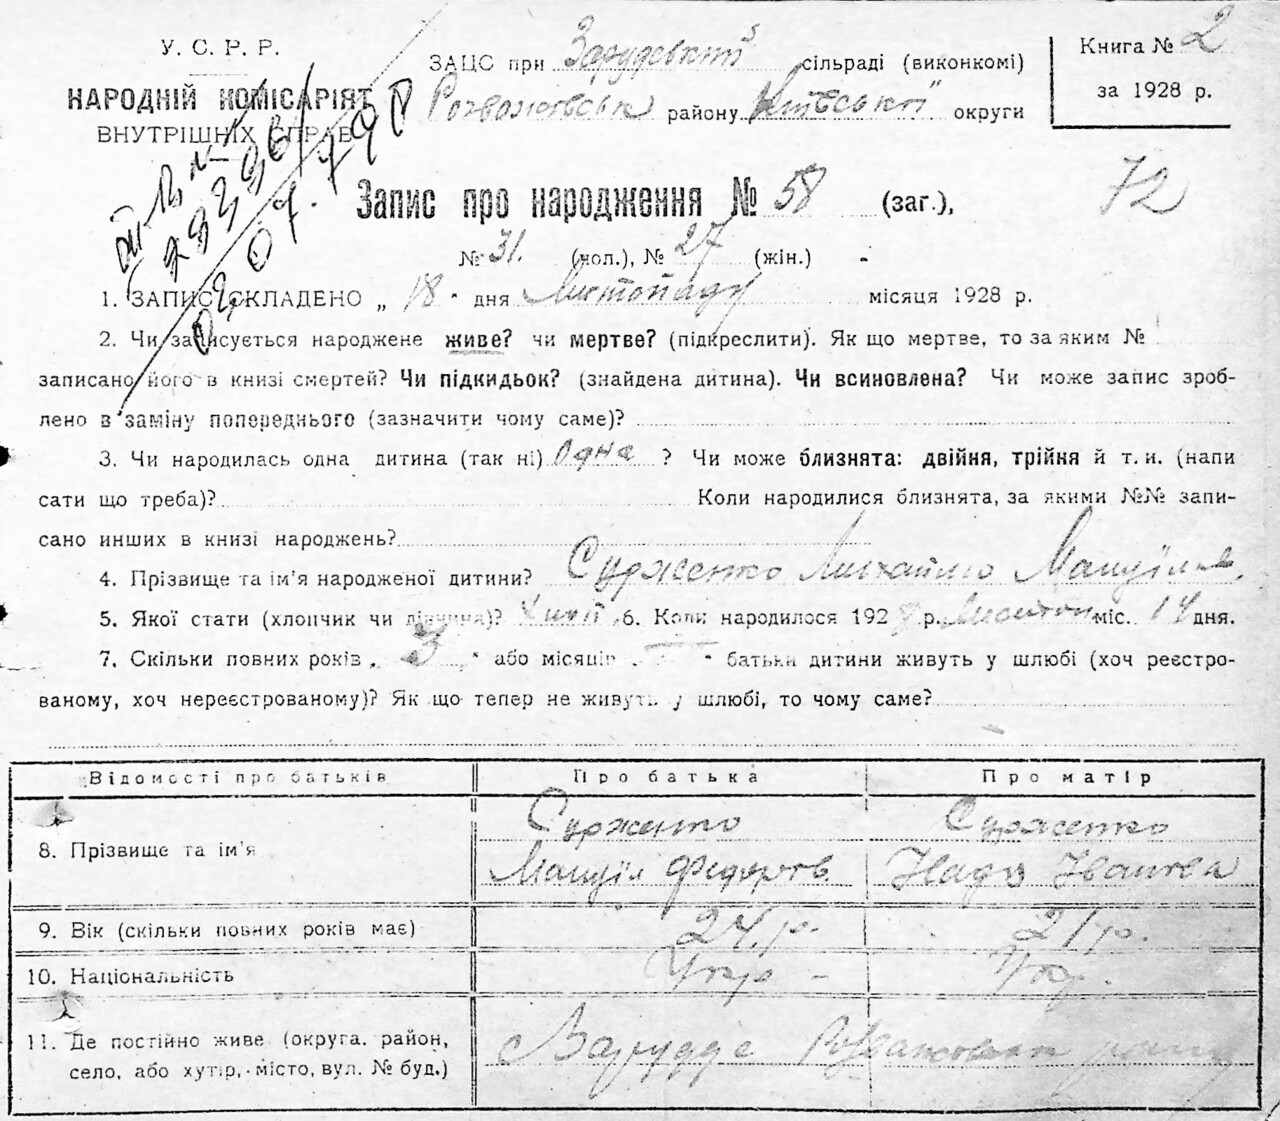 У. С. Р. Р.
НАРОДНІЙ КОМІСАРІЯТ
ВНУТРІШНІХ СПРАВ
ЗАЦС при Зарудській сільраді (виконкомі)
району Київської округи
Книга № 2
за 1928 р.
72
Запис про народження № 58 (заг.),
№ 31. (чол.), № 27 (жін.) -
1. ЗАПИС СКЛАДЕНО „ 18 " дня Листопаду місяця 1928 р.
2. Чи записується народжене живе? чи мертве? (підкреслити). Як що мертве, то за яким №
записано його в книзі смертей? Чи підкидьок? (знайдена дитина). Чи всиновлена? Чи може запис зроб-
лено в заміну попереднього (зазначити чому саме)?
3. Чи народилась одна дитина (так ні) Одна ? Чи може близнята: двійня, трійня й т. и. (напи
сати що треба)? Коли народилися близнята, за якими №№ запи-
сано инших в книзі народжень?
4. Прізвище та ім'я народженої дитини? Сурженко Михайло
5. Якої стати (хлопчик чи дівчина)? 6. Коли народилося 1928 р. Листоп міс. 14 дня.
7. Скільки повних років „ 3 " або місяців " батьки дитини живуть у шлюбі (хоч реєстро-
ваному, хоч нереєстрованому)? Як що тепер не живуть у шлюбі, то чому саме?
Відомості про батьків Про батька Про матір
8. Прізвище та ім'я Сурженко Сурженко
Мануїл Федоров. Надія Іванівна
9. Вік (скільки повних років має) 24 р. 21 р.
10. Національність Укр - Укр.
11. Де постійно живе (округа, район,
село, або хутір, місто, вул. № буд.) с Заруддє